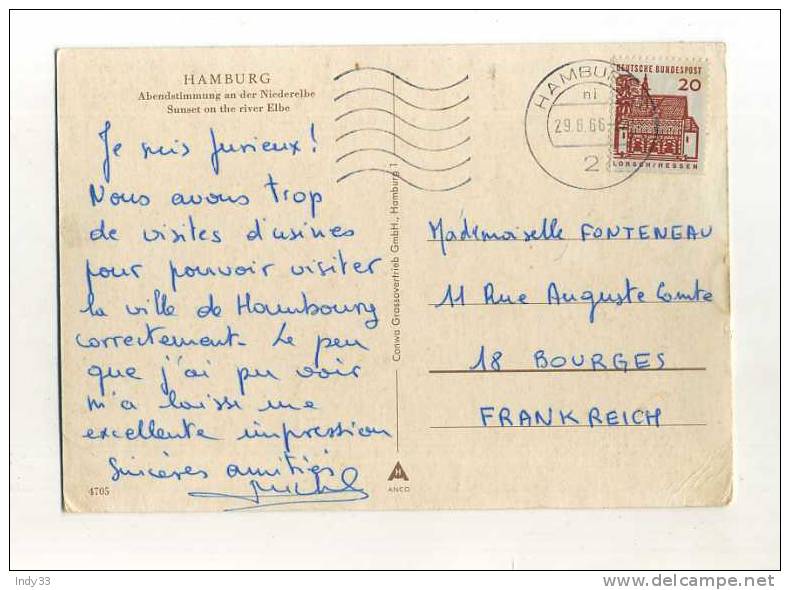 HAMBURG
Abendstimmung an der Niederelbe
Sunset on the river Elbe
Je suis furieux!
Nous avons trop
de visites d'usines
pour pouvoir visiter
la ville de Hambourg
correctement. Le peu
que j'ai pu voir
m'a laissé une
excellente impression
Sincères amitiés
Michel
4705
Conwa Grassovertrieb GmbH., Hamburg 1
ANCO
HAMBURG
ni
29.6.66
2
DEUTSCHE BUNDESPOST
20
LORSCH/HESSEN
Mademoiselle FONTENEAU
11 Rue Auguste Comte
18 BOURGES
FRANKREICH
Indy33
www.delcampe.net